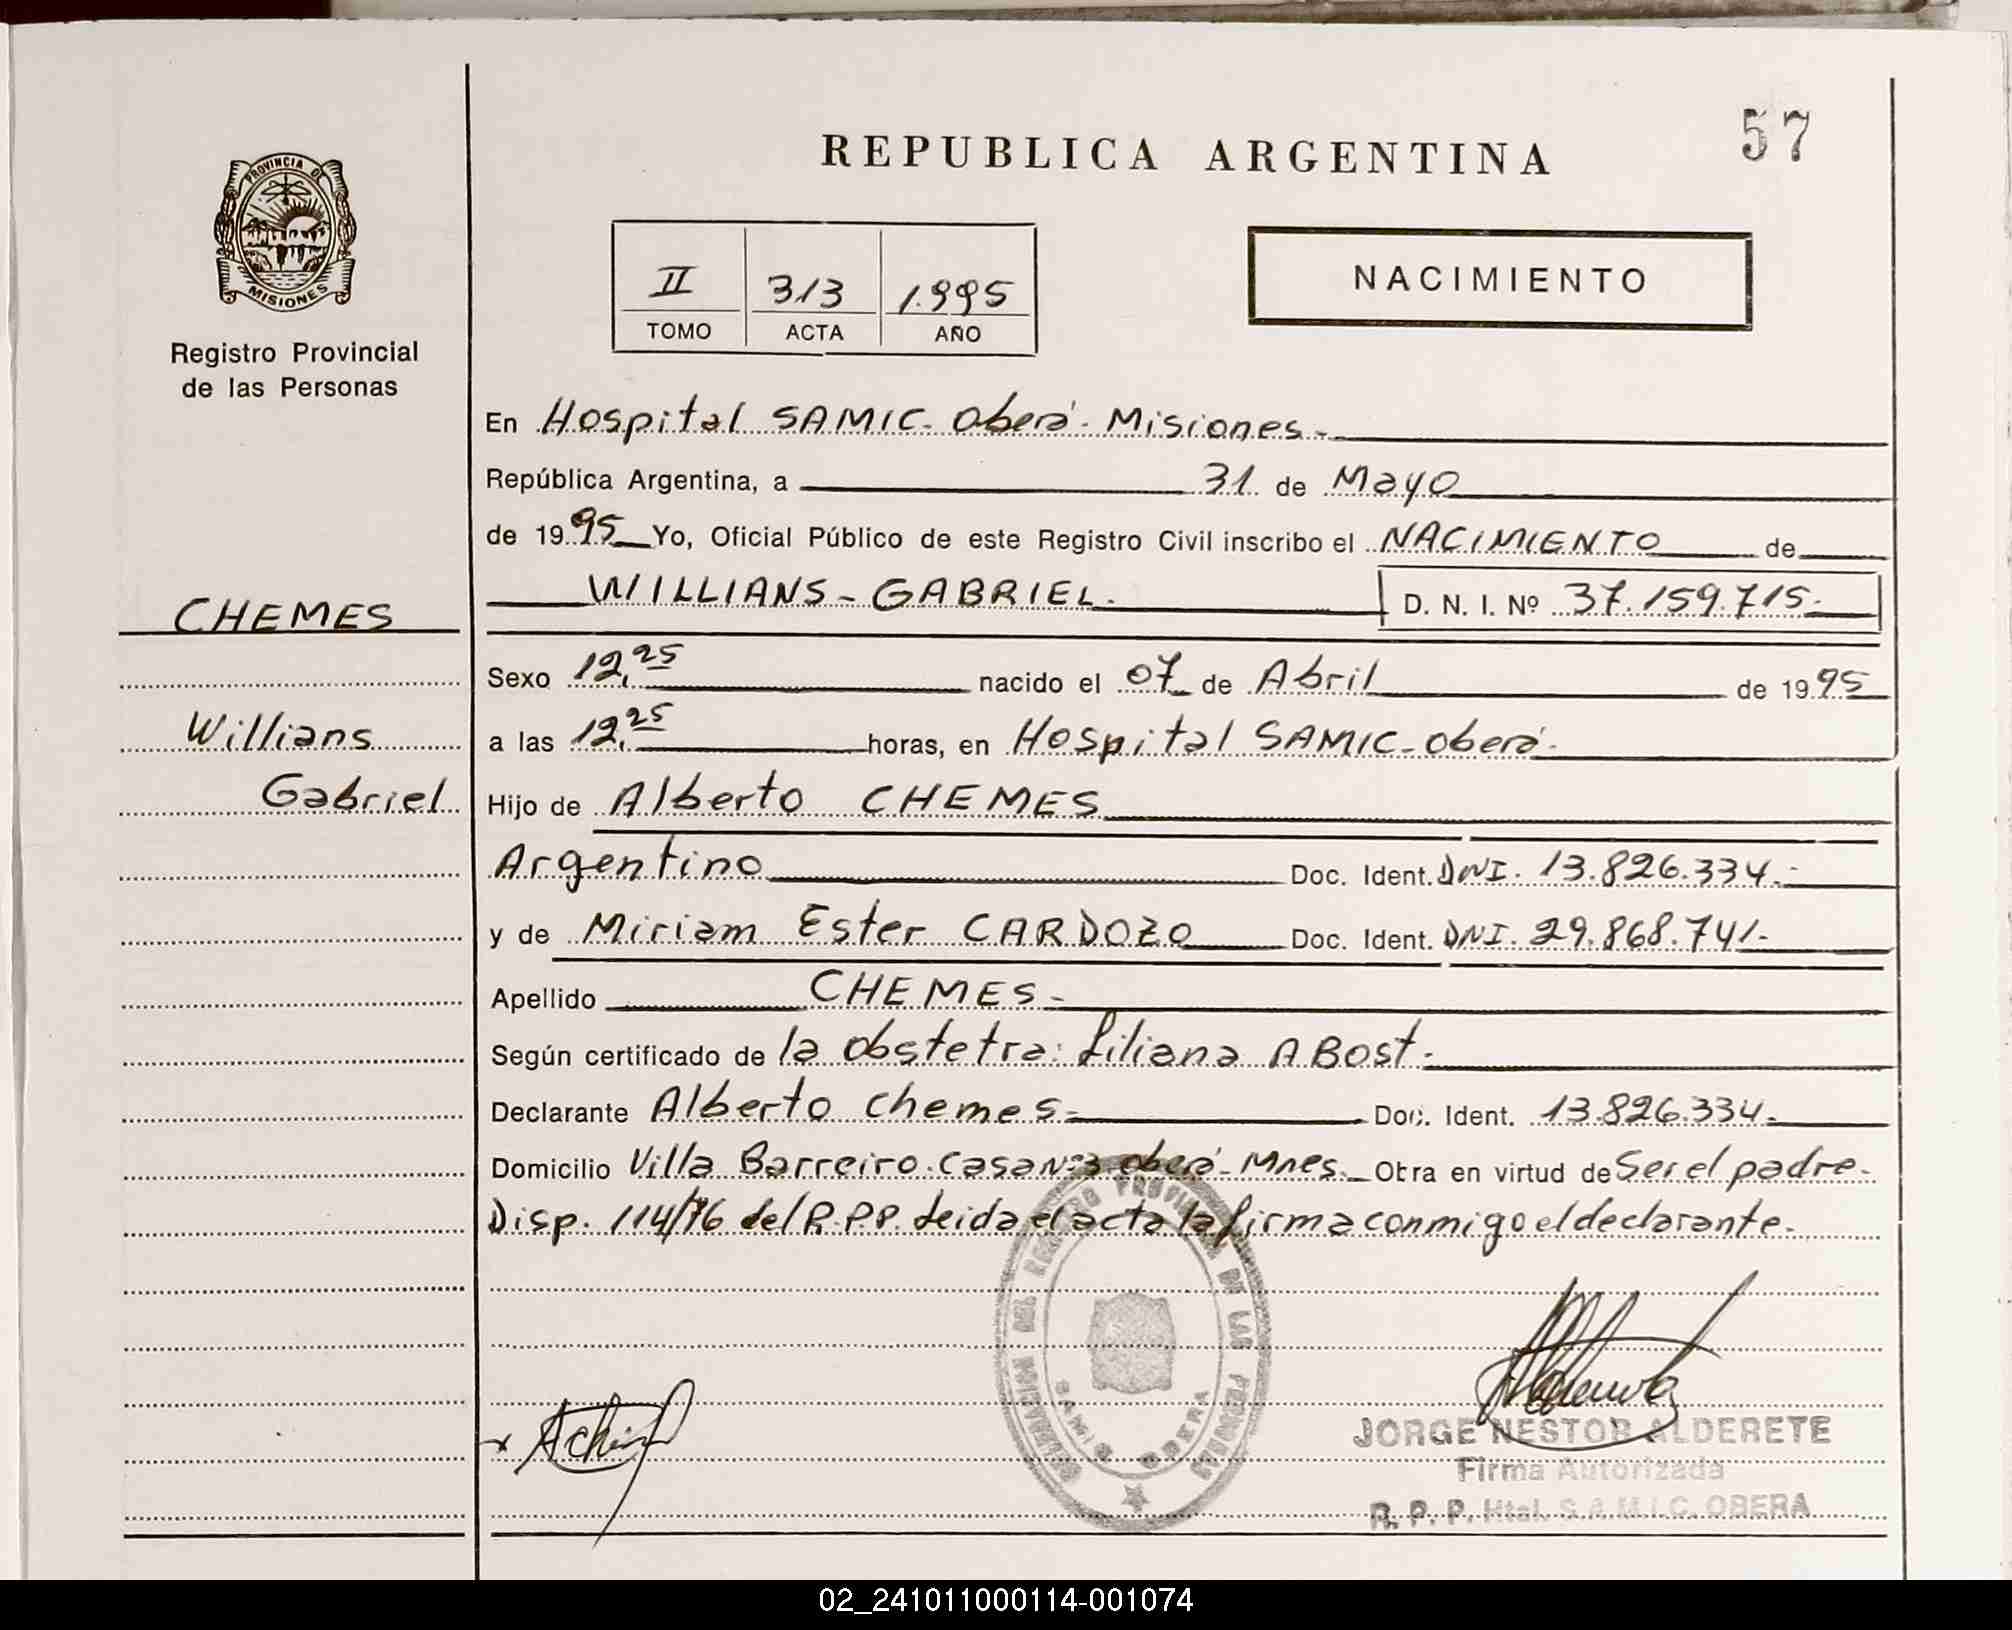 REPUBLICA ARGENTINA
57
PROVINCIA DE
MISIONES
Registro Provincial
de las Personas
II 313 1.995
TOMO ACTA AÑO
NACIMIENTO
En Hospital SAMIC - Oberá - Misiones.-
República Argentina, a 31 de Mayo
de 1995 Yo, Oficial Público de este Registro Civil inscribo el NACIMIENTO de
WILLIANS - GABRIEL. D. N. I. Nº 37.159.715.-
CHEMES
Willians
Gabriel
Sexo 12,25 nacido el 07 de Abril de 1995
a las 12,25 horas, en Hospital SAMIC - Oberá.-
Hijo de Alberto CHEMES
Argentino Doc. Ident. DNI. 13.826.334.-
y de Miriam Ester CARDOZO Doc. Ident. DNI. 29.868.741.-
Apellido CHEMES -
Según certificado de la obstetra: Liliana A Bost.-
Declarante Alberto Chemes.- Doc. Ident. 13.826.334.-
Domicilio Villa Barreiro. Casa Nº 3 Oberá - Mnes. Obra en virtud de Ser el padre.-
Disp. 114/76 del R.P.P. Leida el acta la firma conmigo el declarante.-
DEL REGISTRO PROVINCIAL DE LAS PERSONAS
SAMIC OBERA
JORGE NESTOR ALDERETE
Firma Autorizada
R. P. P. Htal. S.A.M.I.C. OBERA
02_241011000114-001074